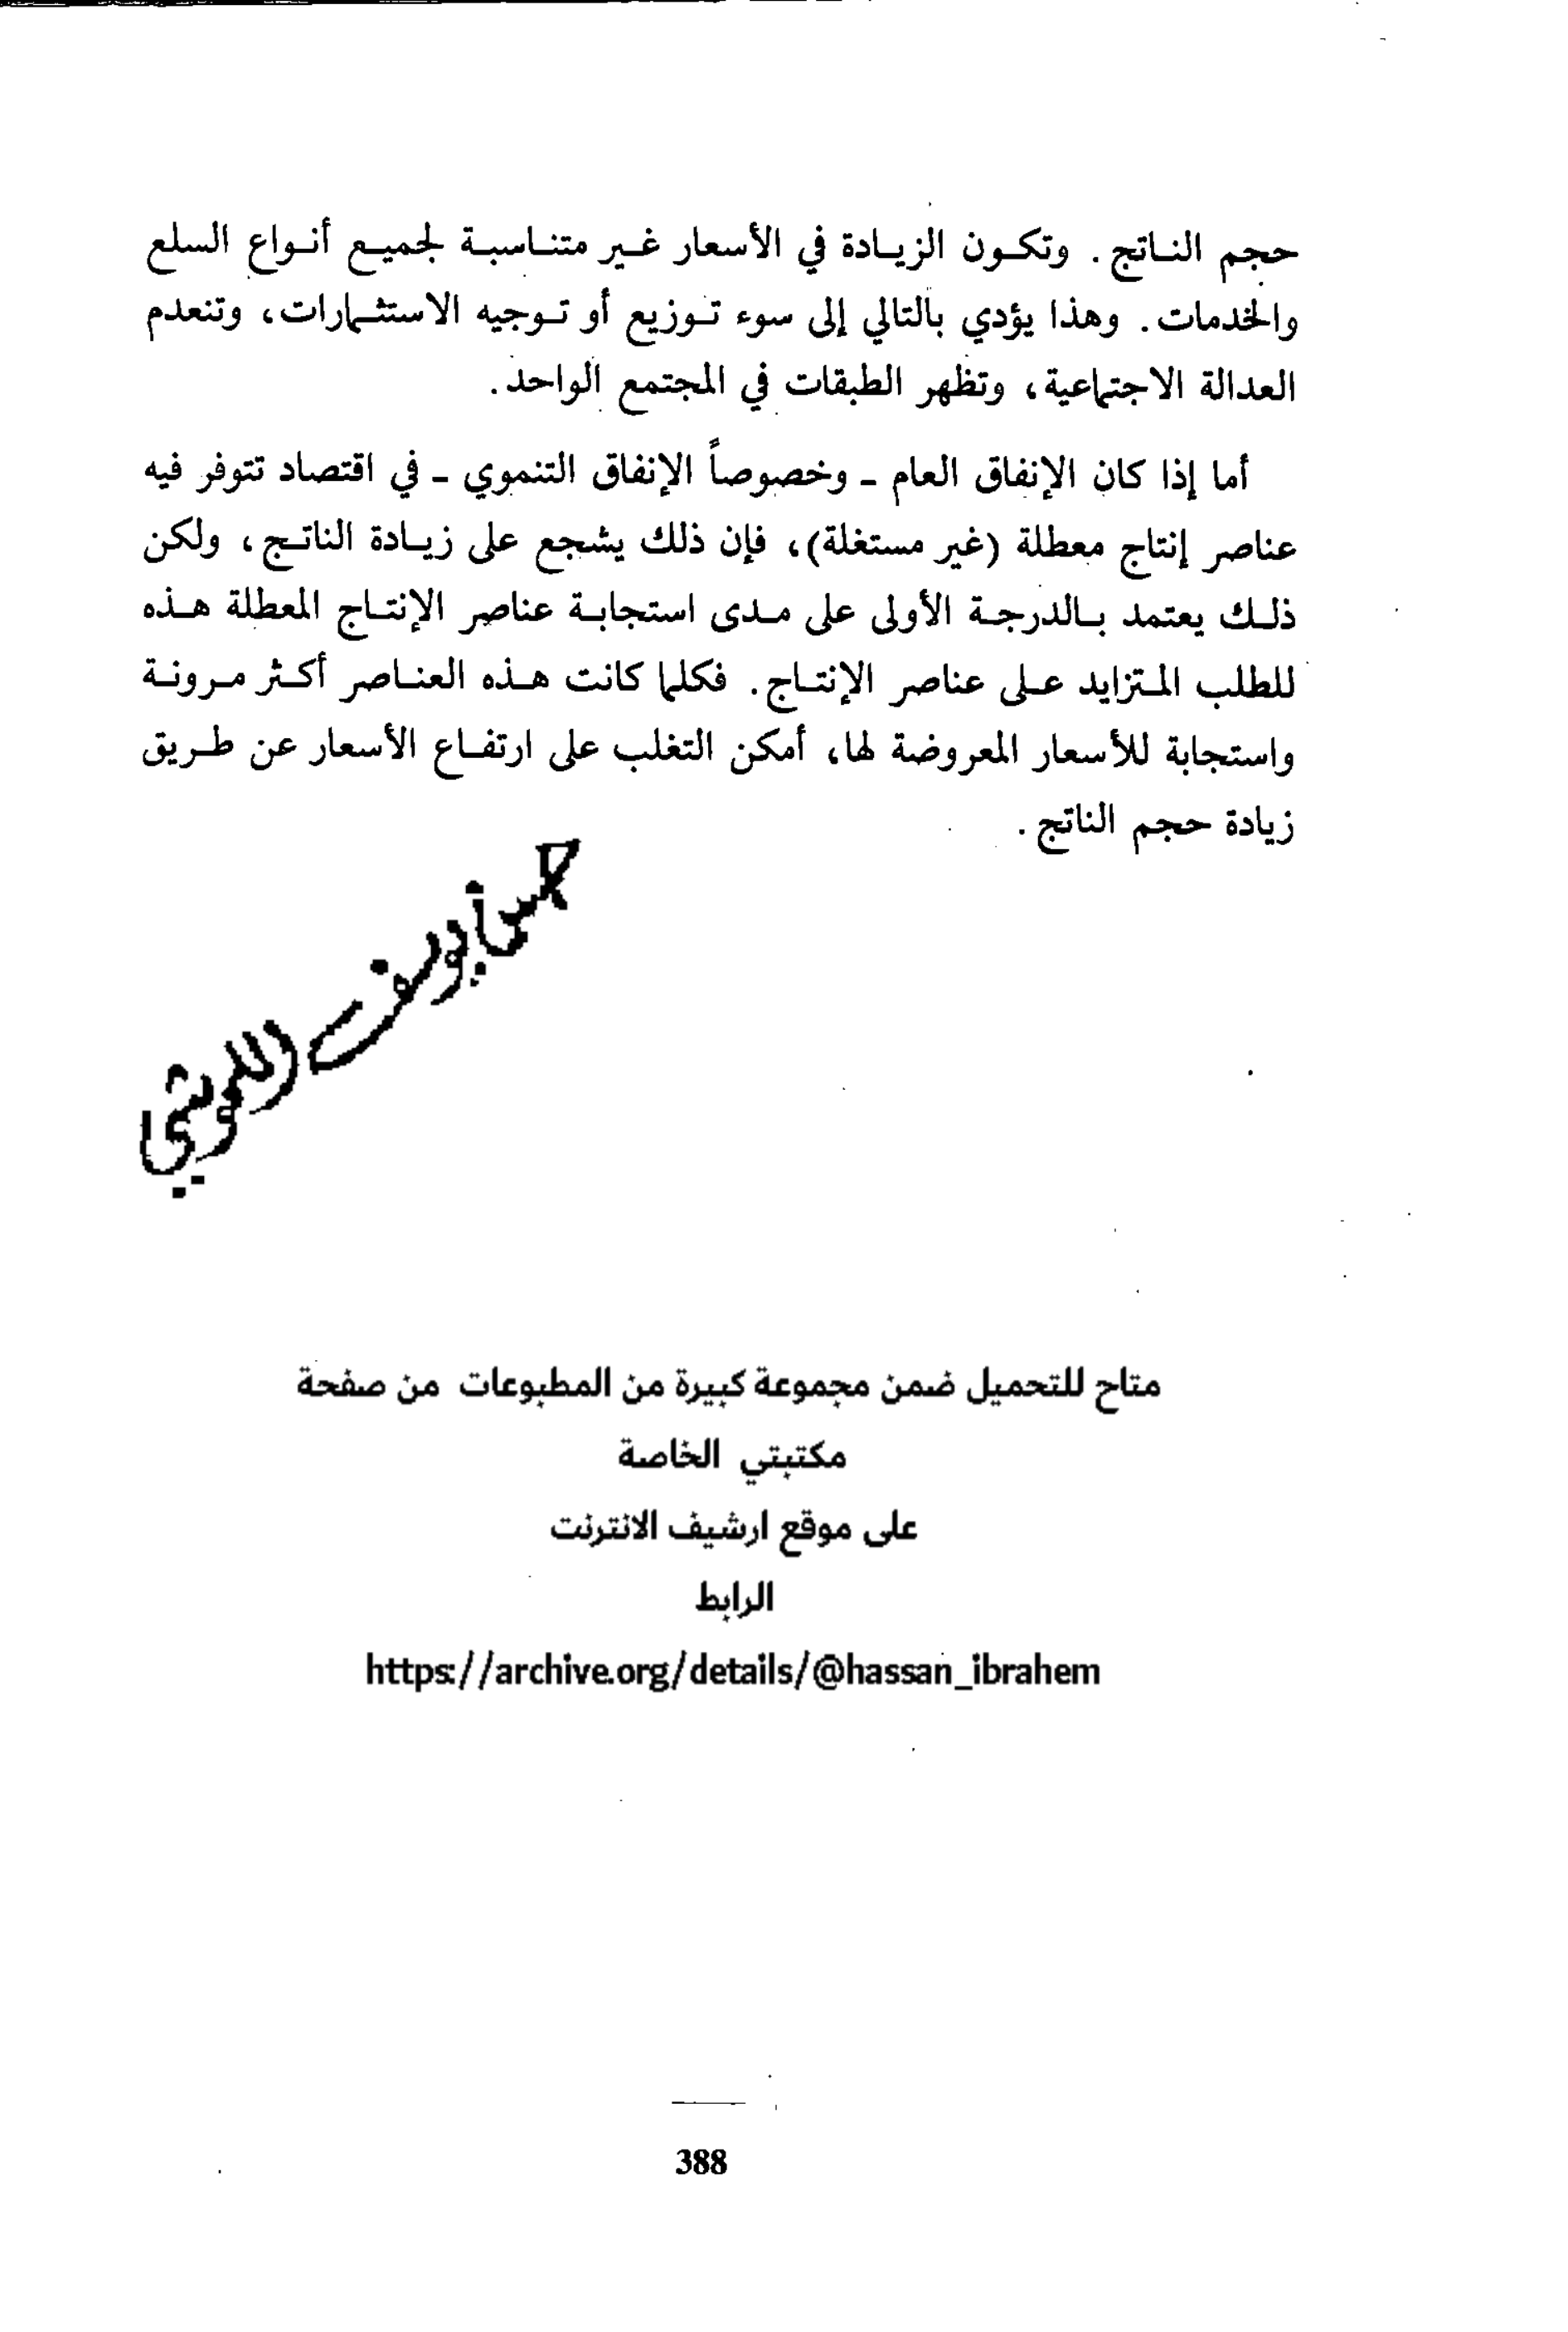 حجم الناتج. وتكون الزيادة في الأسعار غير متناسبة لجميع أنواع السلع
والخدمات. وهذا يؤدي بالتالي إلى سوء توزيع أو توجيه الاستثمارات، وتنعدم
العدالة الاجتماعية، وتظهر الطبقات في المجتمع الواحد.
أما إذا كان الإنفاق العام - وخصوصاً الإنفاق التنموي - في اقتصاد تتوفر فيه
عناصر إنتاج معطلة (غير مستغلة)، فإن ذلك يشجع على زيادة الناتج، ولكن
ذلك يعتمد بالدرجة الأولى على مدى استجابة عناصر الإنتاج المعطلة هذه
للطلب المتزايد على عناصر الإنتاج. فكلما كانت هذه العناصر أكثر مرونة
واستجابة للأسعار المعروضة لها، أمكن التغلب على ارتفاع الأسعار عن طريق
زيادة حجم الناتج.
متاح للتحميل ضمن مجموعة كبيرة من المطبوعات من صفحة
مكتبتي الخاصة
على موقع ارشيف الانترنت
الرابط
https://archive.org/details/@hassan_ibrahem
388